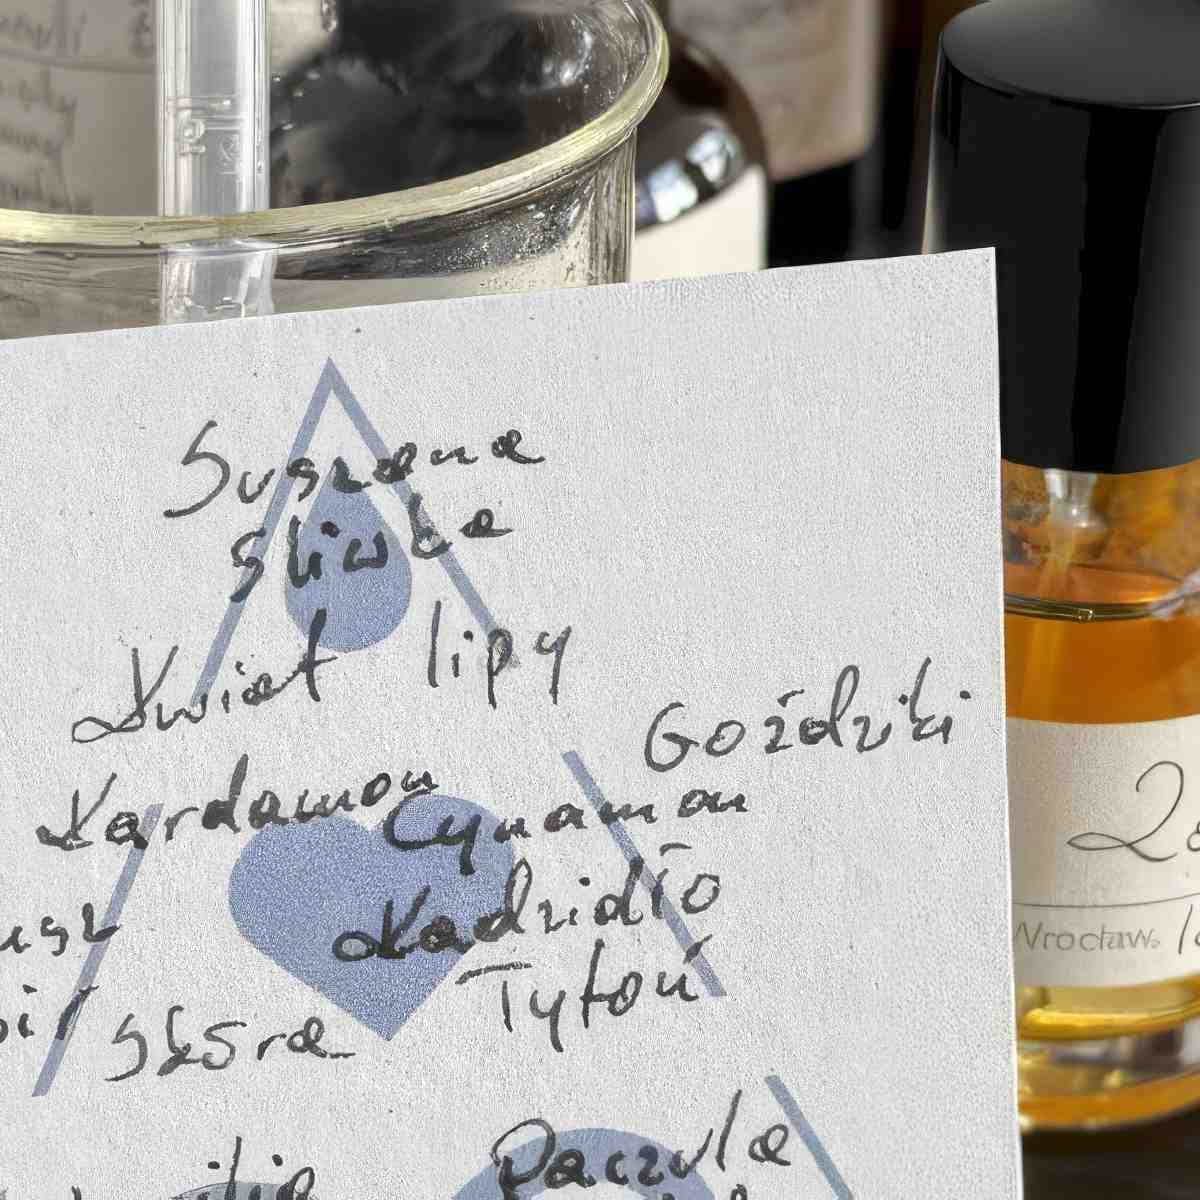 Suszona
śliwka
Kwiat lipy
Goździki
Kardamon
Cynamon
Kadzidło
Tytoń
Skóra
Paczula
Wrocław